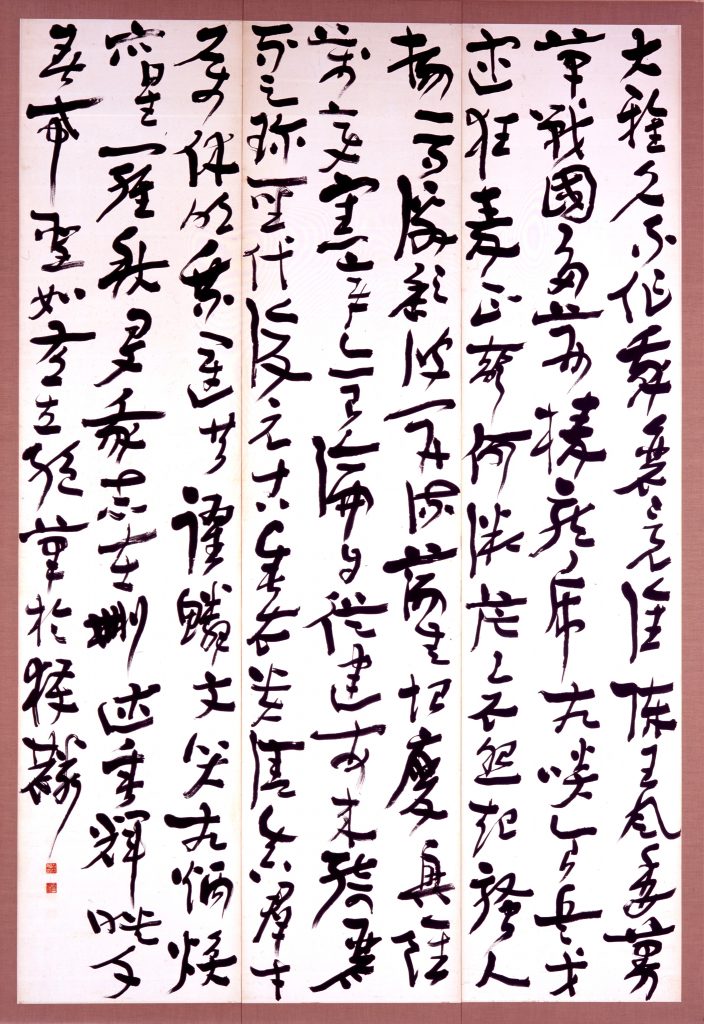 大雅久不作吾衰竟誰陳王風委蔓
草戰國多荊榛龍虎相啖食兵戈
逮狂秦正聲何微茫哀怨起騷人
揚馬激頹波開流蕩無垠廢興雖
萬變憲章亦已淪自從建安来綺麗
不足珍聖代復元古垂衣貴清真群才
属休明乗運共躍鱗文質相炳煥
衆星羅秋旻我志在刪述垂輝映千
春希聖如有立絶筆於獲麟